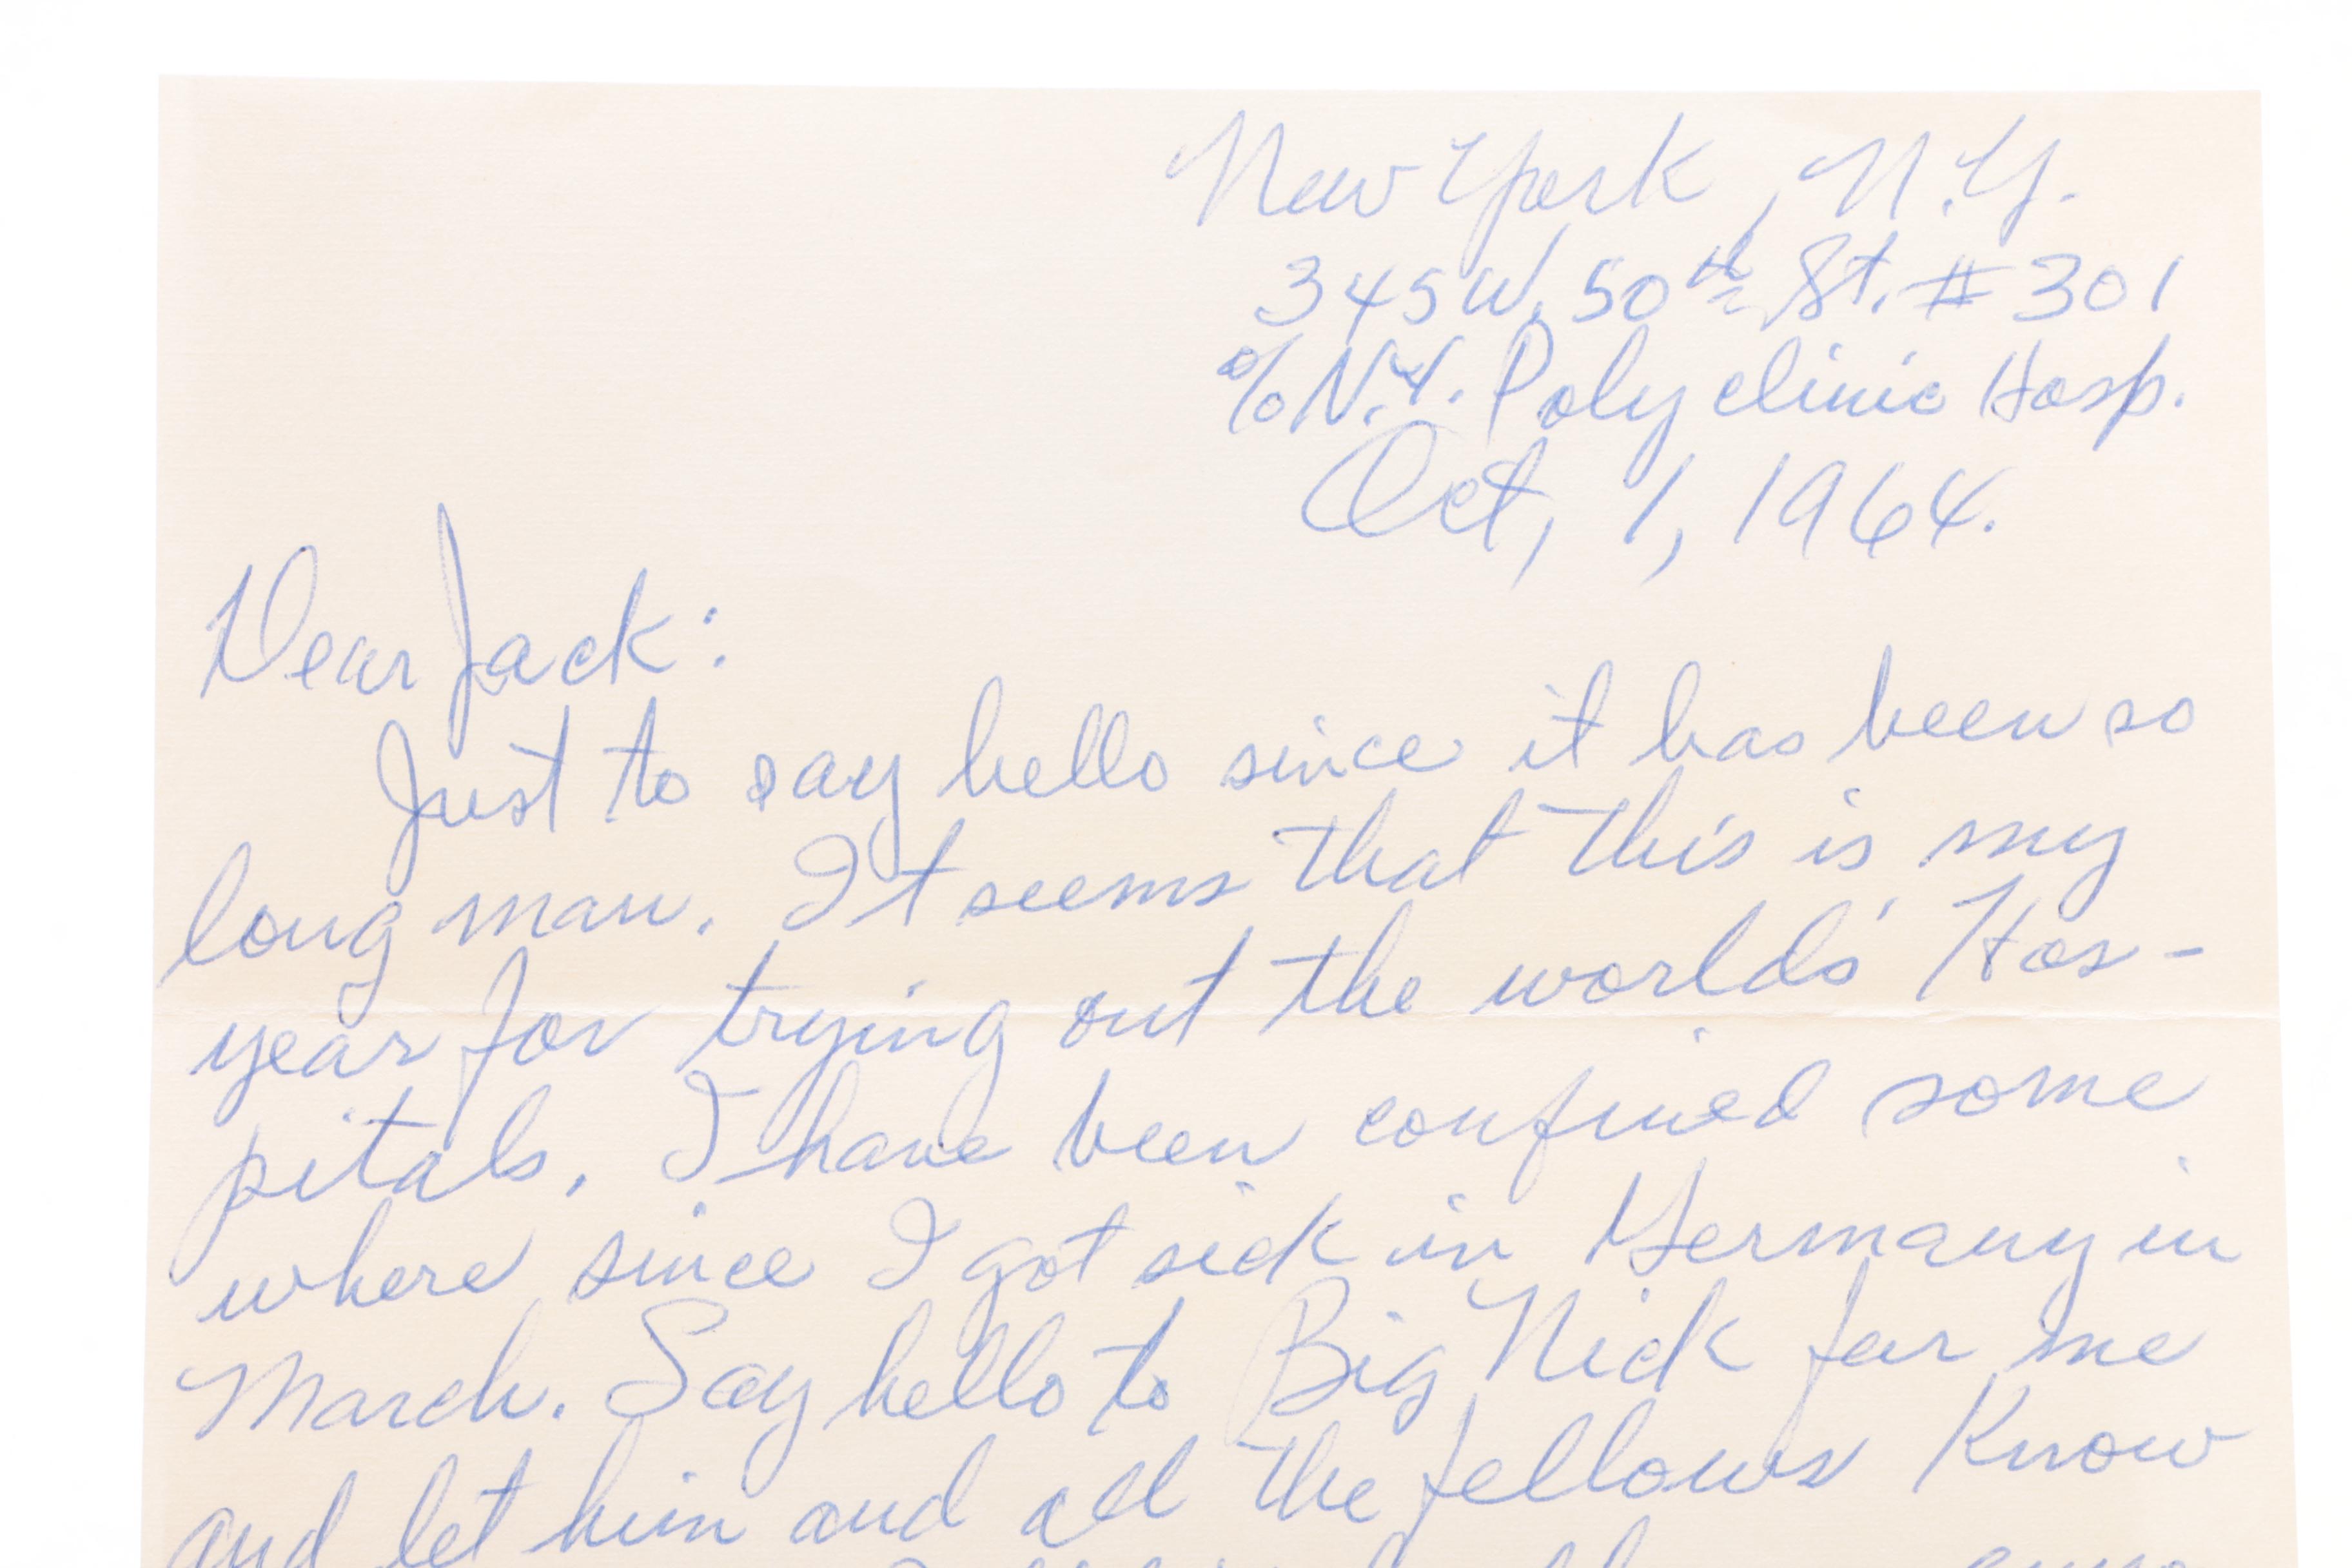 New York, N.Y.
345 W. 50th St. #301
c/o N.Y. Polyclinic Hosp.
Oct, 1, 1964.
Dear Jack:
Just to say hello since it has been so
long man. It seems that this is my
year for trying out the world's Hos-
pitals. I have been confined some
where since I got sick in Germany in
March. Say hello to Big Nick for me
and let him and all the fellows Know